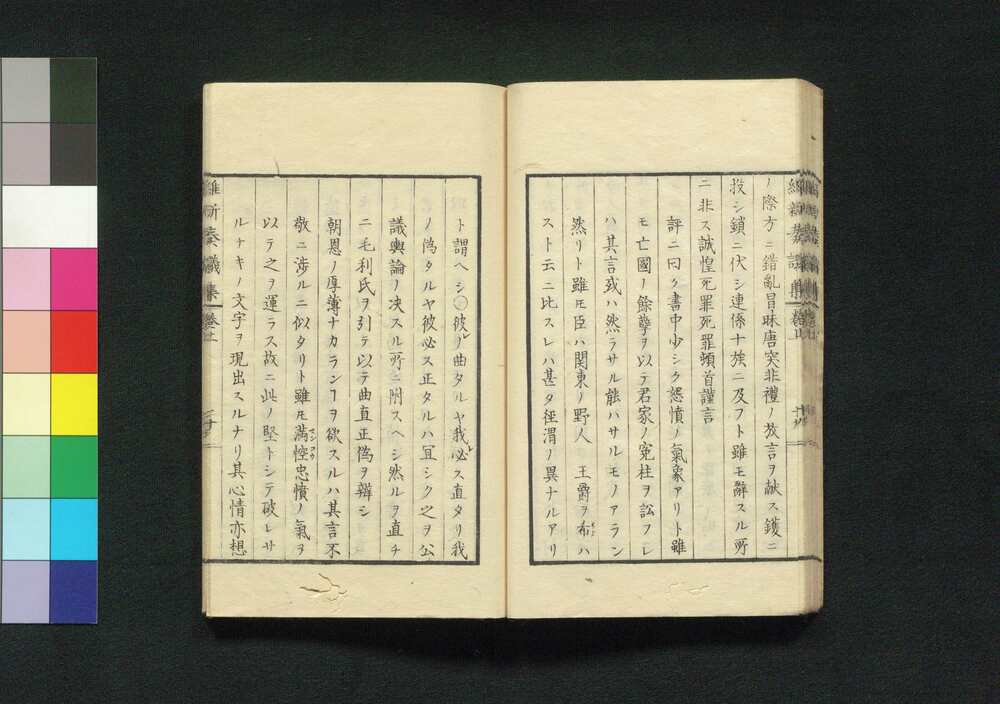 ノ際方ニ錯亂冒昧唐突非禮ノ放言ヲ献ス鑊ニ
投シ鎖ニ伏シ連係十族ニ及フト雖モ辭スル所
ニ非ス誠惶死罪死罪頓首謹言
評ニ曰ク書中少シク怨憤ノ氣象アリト雖
モ亡國ノ餘孽ヲ以テ君家ノ冤枉ヲ訟フレ
ハ其言或ハ然ラサル能ハサルモノアラン
然リト雖モ臣ハ関東ノ野人 王爵ヲ布ハ
スト云ニ比スレハ甚タ徑渭ノ異ナルアリ
ト謂ヘシ〇彼レノ曲タルヤ我必ス直タリ我レ
ノ偽タルヤ彼必ス正タルハ冝シク之ヲ公
議輿論ノ决スル所ニ附スヘシ然ルヲ直チ
ニ毛利氏ヲ引テ以テ曲直正偽ヲ辨シ
朝恩ノ厚薄ナカランヿヲ欲スルハ其言不
敬ニ渉ルニ似タリト雖モ満悾忠憤ノ氣ヲ
以テ之ヲ運ラス故ニ此ノ堅トシテ破レサ
ルナキノ文字ヲ現出スルナリ其心情亦想
維新奏議集 卷廿